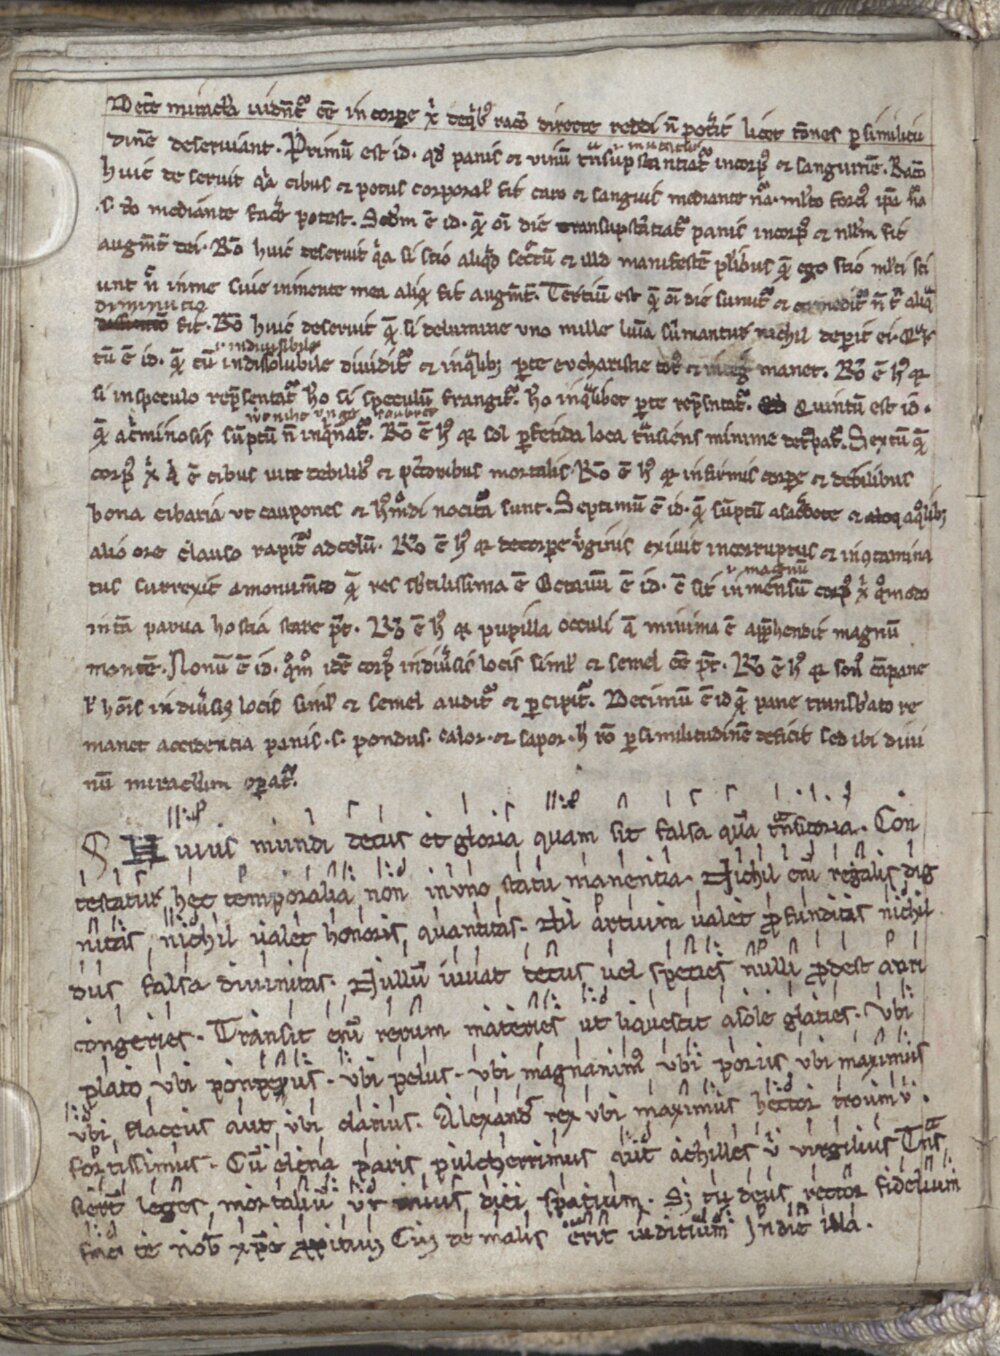 Decē miracl'a vidnt' eē in corpe x̄ de qb' racō directe reddi n̄ potit licet tōnes p similitu
dinē deserviant. Primū est id. qd panis et vinū tn̄supstantiat' in corp' et sanguinē. Racō
huic deservit qa cibus et potus corporal' fit caro et sanguis mediante nā. ml'to forci' ipa
.s. dō mediante facē potest. Scd'm ē id. q̄ oī die transupstātiat' panis in corp' et n̄ll'm fit
augm̄t dei. Rō huic deservit qa si scio aliqd secretū et illd manifestē plibus q̄ ego scio ml'ti sci
unt n̄ in me sive in mente mea aliq fit augm̄t. Tertium est q̄ oī die sumit' et comedit' n̄ aliq
diminutio
fit. Rō huic deservit q̄ si de lumine uno mille luīa sumantur nichil deperit ei. Qr
v indivisibile
tū ē id. q̄ cū indissolubile dividit' et in qlibꝫ pte evcharistie tot' et integ' manet. Rō ē h' qr
si in speculo repsentat' hō si speculū frangit'. hō in qlibet pte repsntat'. Quintum est id.
q̄ a criminosis sūptū n̄ inqinat'. Rō ē h' qr sol p fetida loca tn̄siens minime deturpat'. Sextū q̄
corp' x̄ q ē cibus vite debilib' et pctoribus mortalis. Rō ē h' qr infirmis corpe et debilibus
bona cibaria ut caupones et hmdi nociva sunt. Septimū ē id. q̄ sūptū a sacdote et a qlibꝫ
alio ore clauso rapit' ad celū. Rō ē h' qr de corpe virginis exivit incorruptus et incontamina
tus surrexit a monumēto q̄ res sbtilissima ē Octavū ē id. ē sit in mensū corp' x̄ qomodo
v magnū
in tā parva hostia stare pt. Rō ē h' qr pupilla occuli q minima ē apphendit magnū
montē. Nonū ē id. qm̊ idē corp' in divsis locis siml' et semel eē pt. Rō ē h' qr son' cāpane
t' hōis in divsis locis siml' et semel audit' et pcipit'. Decimū ē id q̄ pane transb'ato re
manet accidentia panis .s. pondus. calor. et sapor. h rō p similitudinē deficit sed ibi divi
nū miraculum opat'.
Huius mundi decus et gloria quam sit falsa quā tn̄sitoria. Con
testatur hec temporalia non in uno statu manentia. Nichil enī regalis dig
nitas, nichil valet honoris quantitas. Nil artium valet pfunditas nichil
dus falsa divinitas. Nullū iuvat decus vel species nulli pdest auri
congeries. Transit enī rerum materies ut liquescit a sole glaties. Vbi
plato vbi ponpeyus. vbi pelus. vbi magnanim' vbi porus vbi maximus
vbi flaccus aut vbi clarius. Alexand' rex vbi maximus hector troum v.
fortissimus. Cū elena paris pulcherrimus aut achilles v virgilius Tn̄s
sierūt leges mortaliū ut unius diei spatium. Si tu deus rector fidelium
fac te nob' xpē ppitiū Cū de malis erit iuditium In die illa.